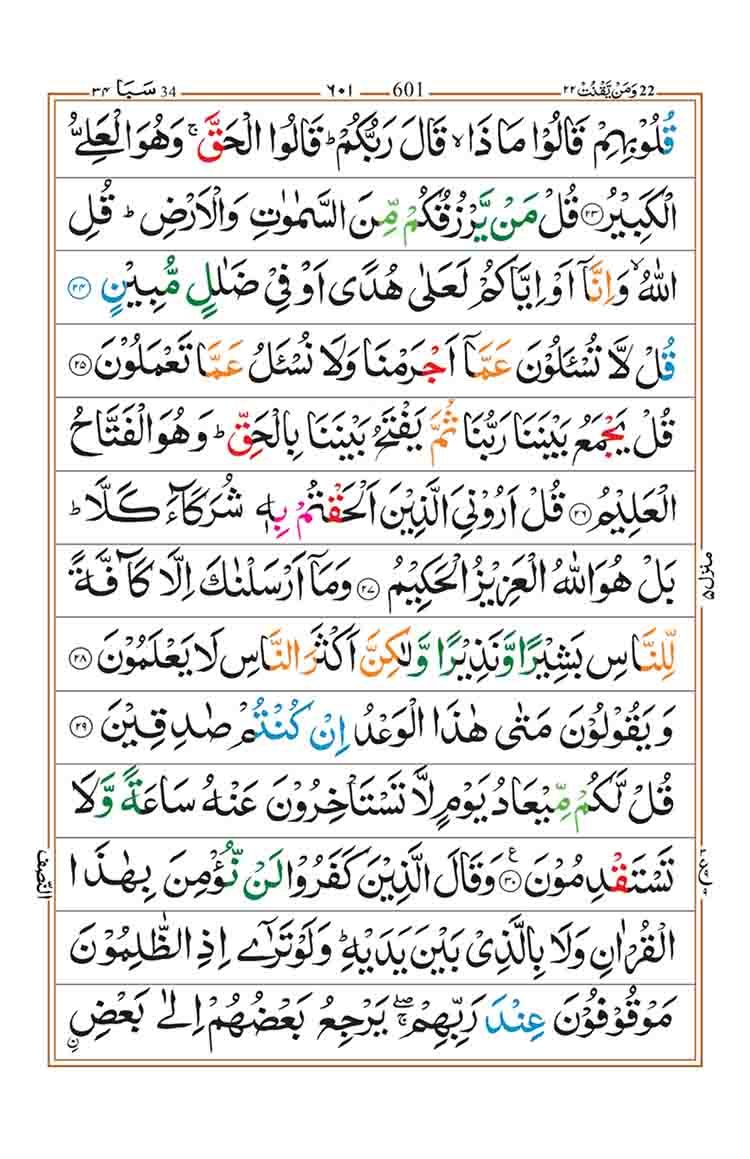 ٣٤ سَبَا 34 ٦٠١ 601 وَمَنْ يَّقْنُتْ ٢٢ 22
قُلُوْبِهِمْ قَالُوْا مَا ذَا ۙ قَالَ رَبُّكُمْ ؕ قَالُوا الْحَقَّ ۚ وَهُوَ الْعَلِىُّ
الْكَبِيْرُ ﴿۲۳﴾ قُلْ مَنْ يَّرْزُقُكُمْ مِّنَ السَّمٰوٰتِ وَالْاَرْضِ ؕ قُلِ
اللّٰهُ ۙ وَاِنَّاۤ اَوْ اِيَّاكُمْ لَعَلٰى هُدًى اَوْ فِىْ ضَلٰلٍ مُّبِيْنٍ ﴿۲۴﴾
قُلْ لَّا تُسْـَٔلُوْنَ عَمَّاۤ اَجْرَمْنَا وَلَا نُسْـَٔلُ عَمَّا تَعْمَلُوْنَ ﴿۲۵﴾
قُلْ يَجْمَعُ بَيْنَنَا رَبُّنَا ثُمَّ يَفْتَحُ بَيْنَنَا بِالْحَقِّ ؕ وَهُوَ الْفَتَّاحُ
الْعَلِيْمُ ﴿۲۶﴾ قُلْ اَرُوْنِىَ الَّذِيْنَ اَلْحَقْتُمْ بِهٖ شُرَكَآءَ كَلَّا ؕ
بَلْ هُوَ اللّٰهُ الْعَزِيْزُ الْحَكِيْمُ ﴿۲۷﴾ وَمَاۤ اَرْسَلْنٰكَ اِلَّا كَآفَّةً
لِّلنَّاسِ بَشِيْرًا وَّنَذِيْرًا وَّلٰكِنَّ اَكْثَرَ النَّاسِ لَا يَعْلَمُوْنَ ﴿۲۸﴾
وَيَقُوْلُوْنَ مَتٰى هٰذَا الْوَعْدُ اِنْ كُنْتُمْ صٰدِقِيْنَ ﴿۲۹﴾
قُلْ لَّكُمْ مِّيْعَادُ يَوْمٍ لَّا تَسْتَاْخِرُوْنَ عَنْهُ سَاعَةً وَّلَا
تَسْتَقْدِمُوْنَ ﴿۳۰﴾ ع وَقَالَ الَّذِيْنَ كَفَرُوْا لَنْ نُّؤْمِنَ بِهٰذَا
الْقُرْاٰنِ وَلَا بِالَّذِىْ بَيْنَ يَدَيْهِ ؕ وَلَوْ تَرٰٓى اِذِ الظّٰلِمُوْنَ
مَوْقُوْفُوْنَ عِنْدَ رَبِّهِمْ ۖۚ يَرْجِعُ بَعْضُهُمْ اِلٰى بَعْضِ ۨ
منزل ۵
النّصف